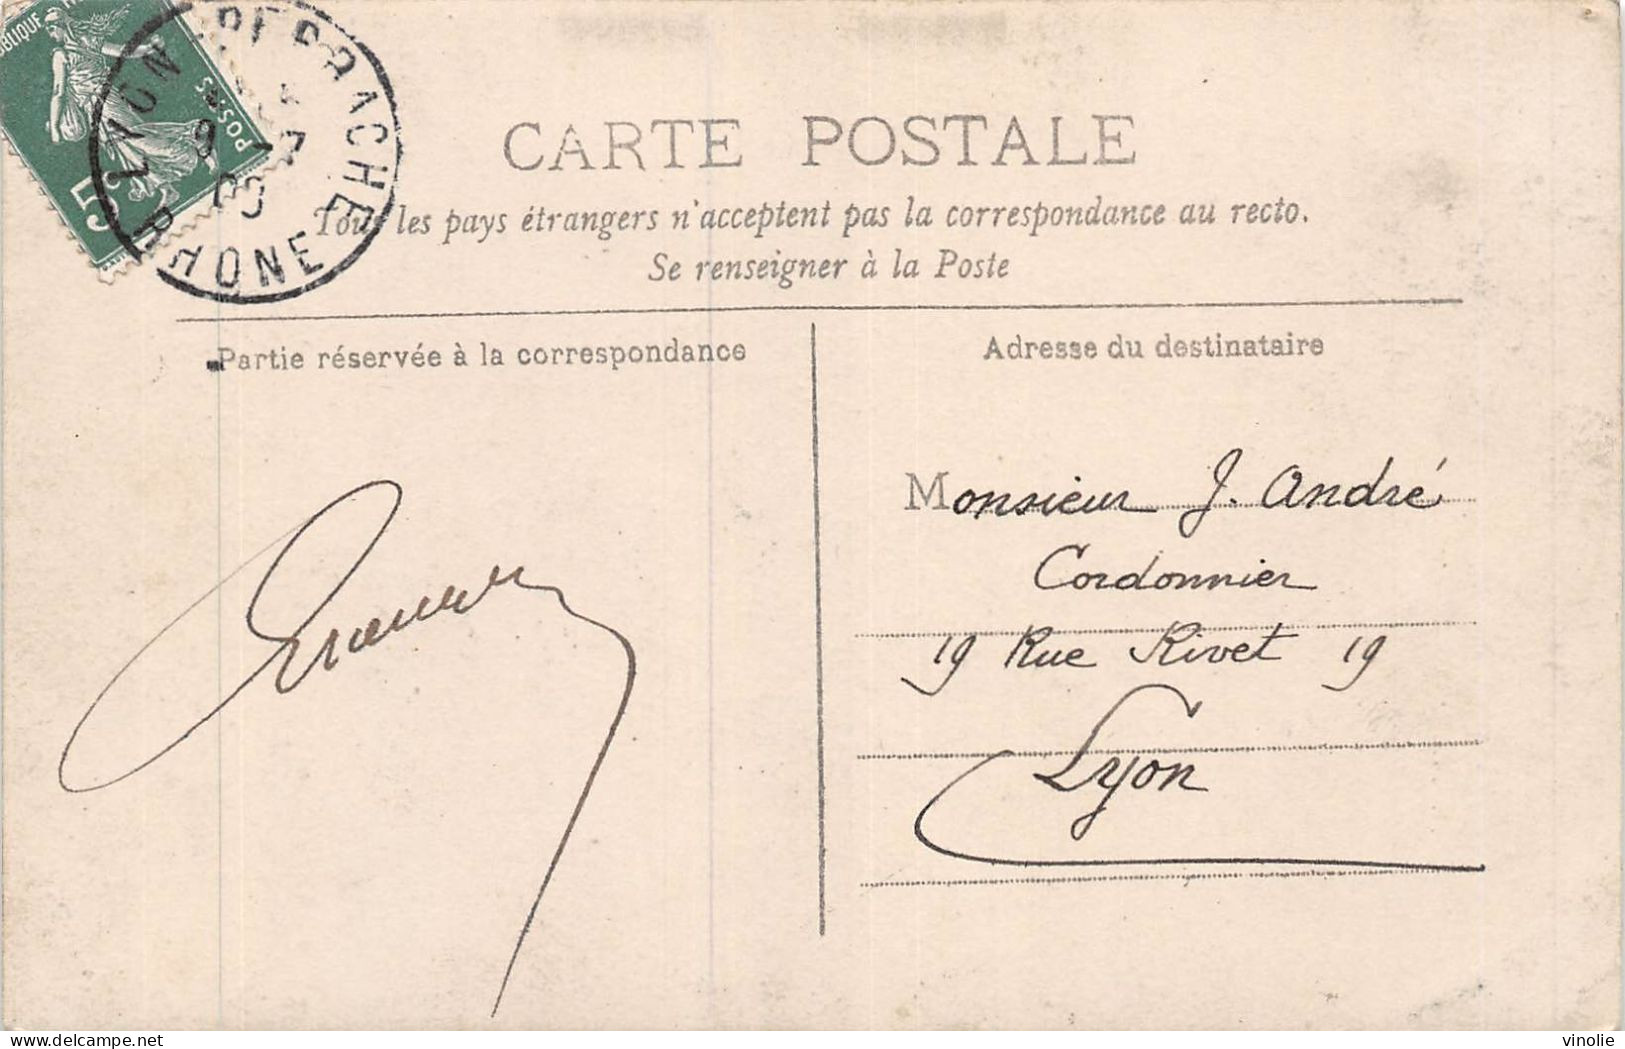 POSTES
5
LYON-PERRACHE
RHONE
CARTE POSTALE
Tous les pays étrangers n'acceptent pas la correspondance au recto.
Se renseigner à la Poste
Partie réservée à la correspondance
Adresse du destinataire
Monsieur J. André
Cordonnier
19 Rue Rivet 19
Lyon
vinolie